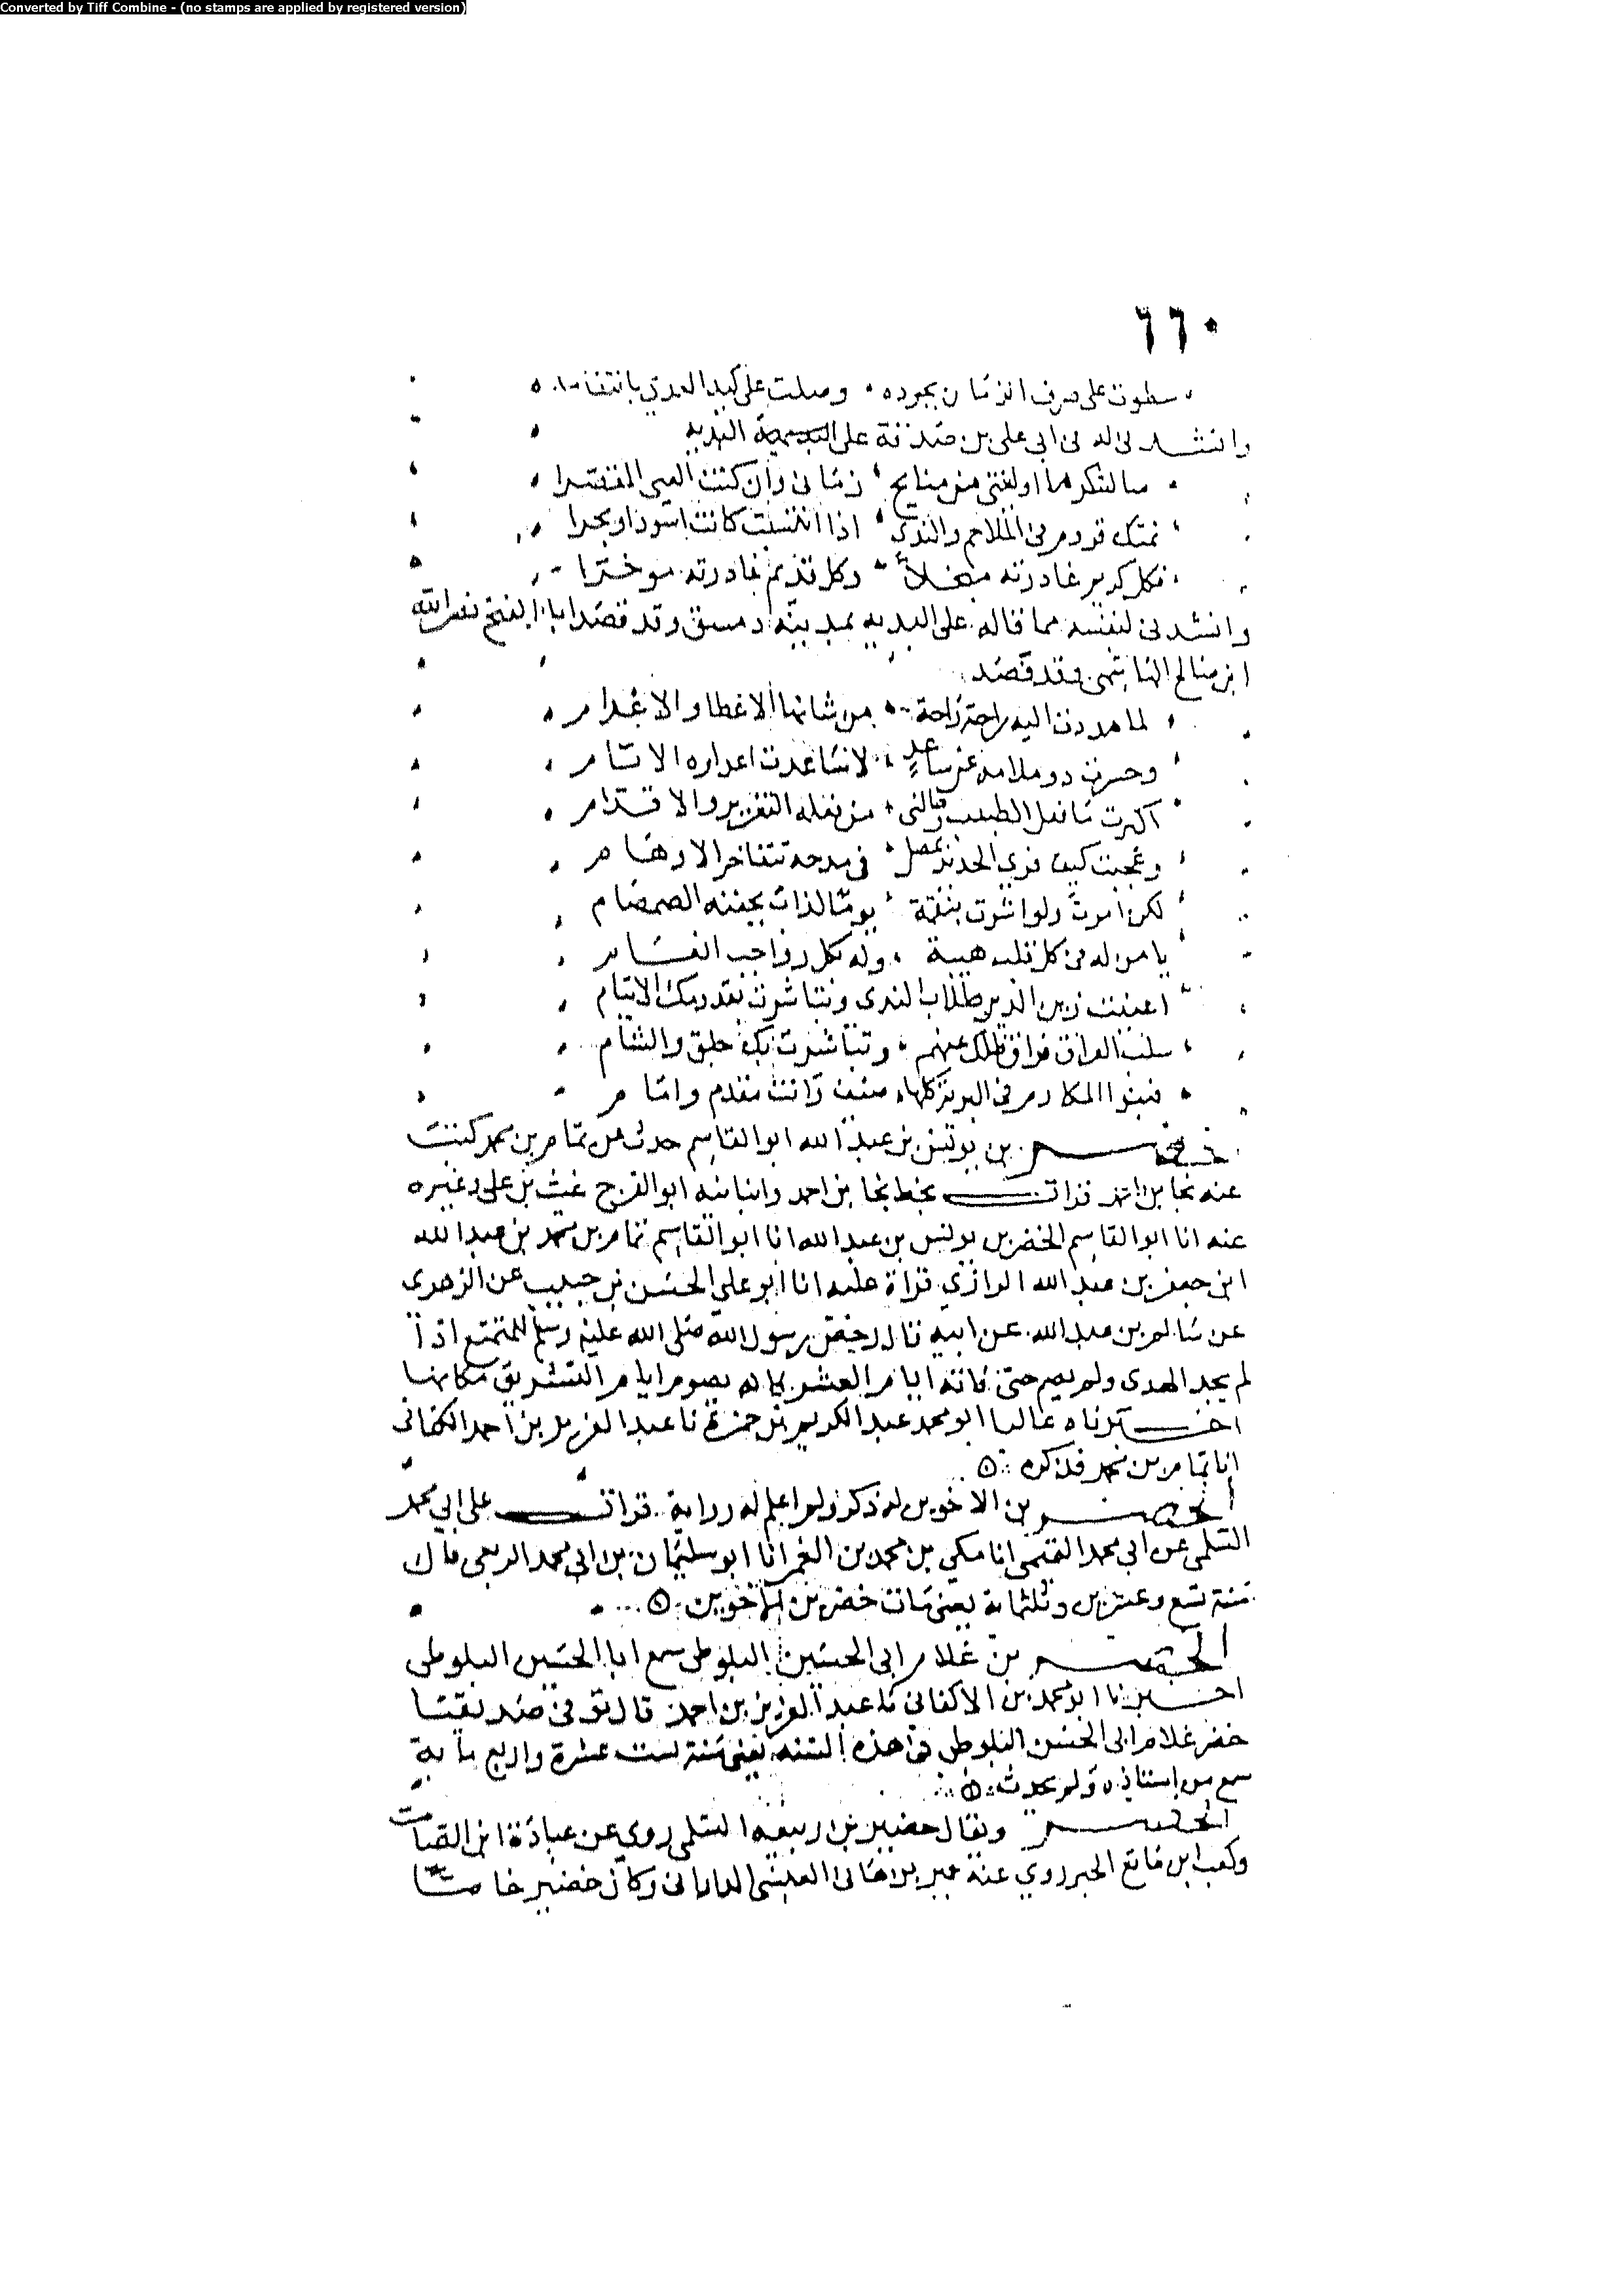 Converted by Tiff Combine - (no stamps are applied by registered version)
٦٦٠
سطوت على صرف الزمان بجوده وصلت على كيد العدى بانتقا
وانشدنى له فى ابى على بن صدقة على البديه
ساشكر ما اولیتنی من منايح زمانى وان كنت العيى المقصرا
نمتك قروم فى الملاحم والندى اذا انتسبت كانت اسودا وبحرا
فكل كريم غادرته مبخلا وكل قديم غادرته موخرا
وانشدنى لنفسه مما قاله على البديه بمدينة دمشق وقد قصد ابا الفتح نصر الله
ابن صالح الهاشمى وقد فصد
لما مددت اليه راحة راحة من شانها الاعطا والاعدام
وحسرت دو ملامه عن ساعد لا ساعدت اعداره الايام
اكبرت ما فعل الطبيب من فعله التغرير والاقدام
وعجبت كيف فرى الحديد فى مدحه تتفاخر الاوهام
لكن امرت ولو اشرت بنقمة يوما لذاب بجفنه الصمصام
يا من له فى كل قلب هيبة وله بكل
زين الدين طلاب الندى وتباشرت بقدومك الايتام
سلب العراق فراق ظلك عنهم وتباشرت بك جلق والشام
فبنوا المكارم فى البرية كلها صف وانت مقدم وامام
خضر بن يونس بن عبد الله ابو القاسم حدث عن تمام بن محمد كتب
عنه نجا بن احمد قرات بخط نجا بن احمد وانبانيه ابو الفرج غيث بن على وغيره
عنه انا ابو القاسم الخضر بن يونس بن عبد الله انا ابو القاسم تمام بن محمد بن عبد الله
ابن جعفر بن عبد الله الرازى قراة عليه انا ابو على الحسن بن حبيب عن الزهرى
عن سالم بن عبد الله عن ابيه قال رخص رسول الله صلى الله عليه وسلم للمتمتع اذا
لم يجد الهدى ولم يصم حتى فاته ايام العشر انه يصوم ايام التشريق مكانها
اخبرناه عاليا ابو محمد عبد الكريم بن حمزة نا عبد العزيز بن احمد الكتانى
انا تمام بن محمد فذكره
الخضر بن الاخوين له ذكر ولم اعلم له رواية قرات على ابى محمد
السلمى عن ابى محمد التميمى انا مكى بن محمد بن الغمر انا ابو سليمان بن ابى محمد الربعى قال
سنة تسع وعشرين وثلثماية يعنى مات خضر بن الاخوين
الخضر بن غلام ابى الحسين البلوطى سمع ابا الحسين البلوطى
اخبرنا ابو محمد بن الاكفانى نا عبد العزيز بن احمد قال توفى صديقنا
خضر غلام ابى الحسن البلوطى فى هذه السنه يعنى سنة ست عشرة واربع ماية
سمع من استاذه ولم يحدث
الخضر ويقال خضير بن ربيعه السلمى روى عن عبادة ابن الصامت
وكعب ابن ماتع الحبر روى عنه عمير بن هانى العبسى الدارانى وكان خضير خا